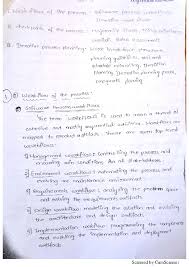 1. Workflows of the process: Software process workflows,
Iteration workflows
2. Checkpoints of the process: Major mile stones, Minor milestones,
Periodic status assessments
3. Iterative process planning: Work breakdown structures,
planning guidelines, cost and
schedule estimating, Iteration
planning process,
pragmatic planning
1) Workflows of the process:
Software process workflows
The term workflow is used to mean a thread of
cohesive and mostly sequential activities. Workflows are
mapped to product artifacts. There are seven top level
workflows:
1) Management workflow: controlling the process and
ensuring win conditions for all stakeholders
2) Environment workflow: automating the process and
evolving the maintenance environment
3) Requirements workflow: analyzing the problem space
and evolving the requirements artifacts
4) Design workflow: modeling the solution and evolving
the architecture and design artifacts
5) Implementation workflow: programming the components
and evolving the implementation and deployment
artifacts
Scanned by CamScanner